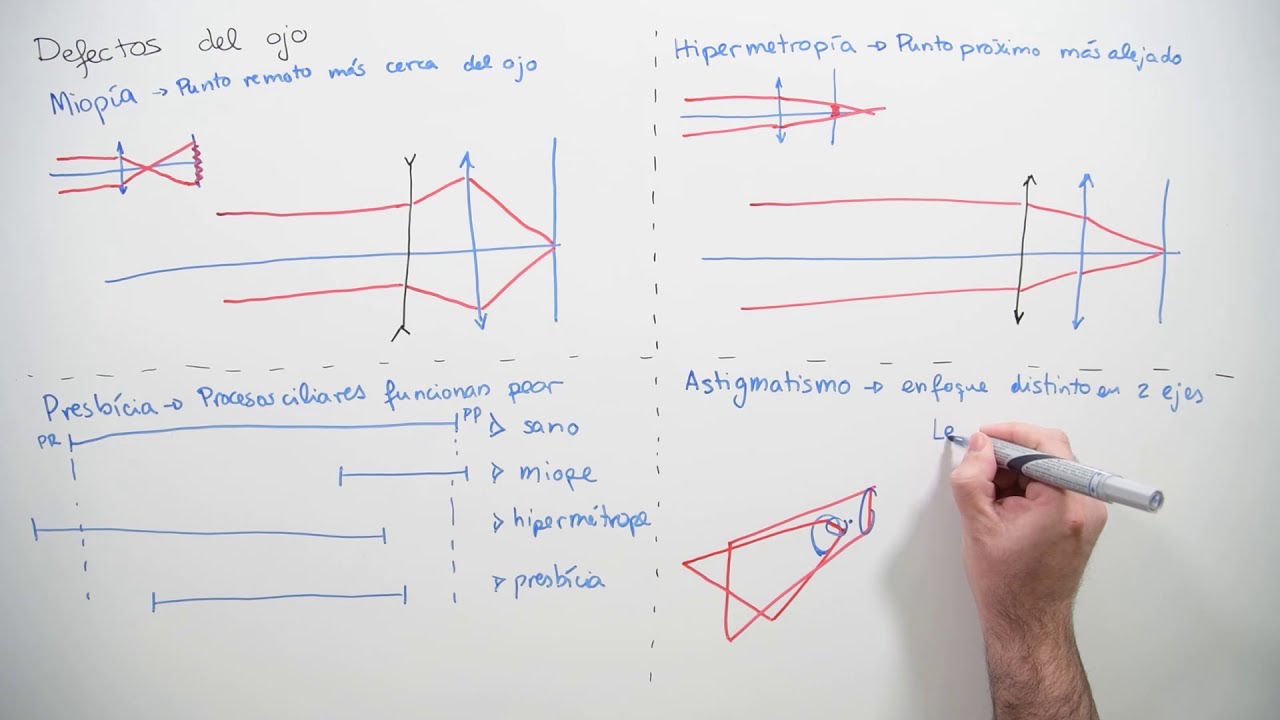 Defectos del ojo
Miopía → Punto remoto más cerca del ojo
Hipermetropía → Punto próximo más alejado
Presbícia → Procesos ciliares funcionan peor
PR
PP
sano
miope
hipermétrope
presbícia
Astigmatismo → enfoque distinto en 2 ejes
Le